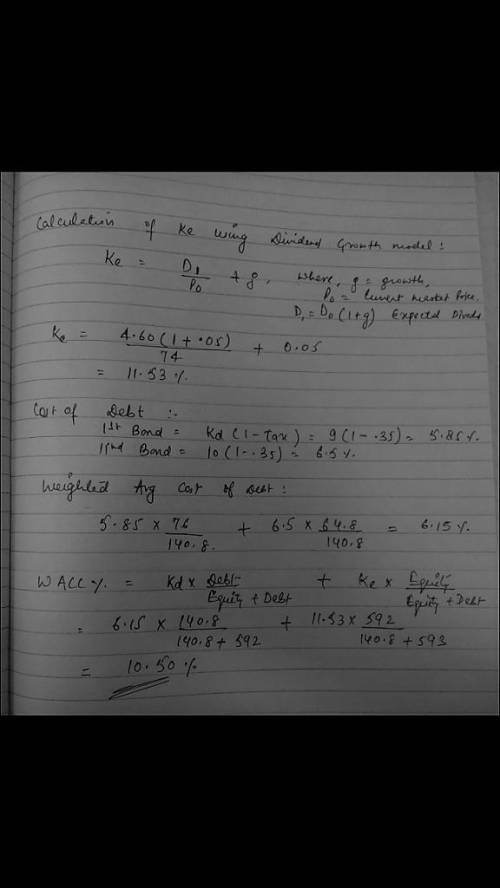 Calculation of Ke using Dividend Growth model :
Ke = D1/P0 + g, where, g = growth,
P0 = Current Market Price,
D1 = D0 (1+g) Expected Divide
Ke = 4.60(1 + .05)/74 + 0.05
= 11.53 %
Cost of Debt :-
1st Bond = Kd (1-Tax) = 9(1-.35) = 5.85%.
IInd Bond = 10(1-.35) = 6.5%.
Weighted Avg Cost of Debt :
5.85 × 76/140.8. + 6.5 × 64.8/140.8 = 6.15%.
WACC%. = Kd × Debt/Equity + Debt + Ke × Equity/Equity + Debt
= 6.15 × 140.8/140.8 + 592 + 11.53 × 592/140.8 + 593
= 10.50 %